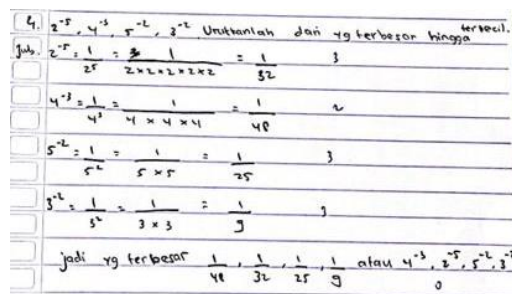 4. 2⁻⁵, 4⁻³, 5⁻², 3⁻² Urutkanlah dari yg terbesar hingga terkecil.
Jwb. 2⁻⁵ = 1/2⁵ = 1/2×2×2×2×2 = 1/32 3
4⁻³ = 1/4³ = 1/4 × 4 × 4 = 1/48 2
5⁻² = 1/5² = 1/5 × 5 = 1/25 3
3⁻² = 1/3² = 1/3 × 3 = 1/9 3
jadi yg terbesar 1/48, 1/32, 1/25, 1/9 atau 4⁻³, 2⁻⁵, 5⁻², 3⁻²
0